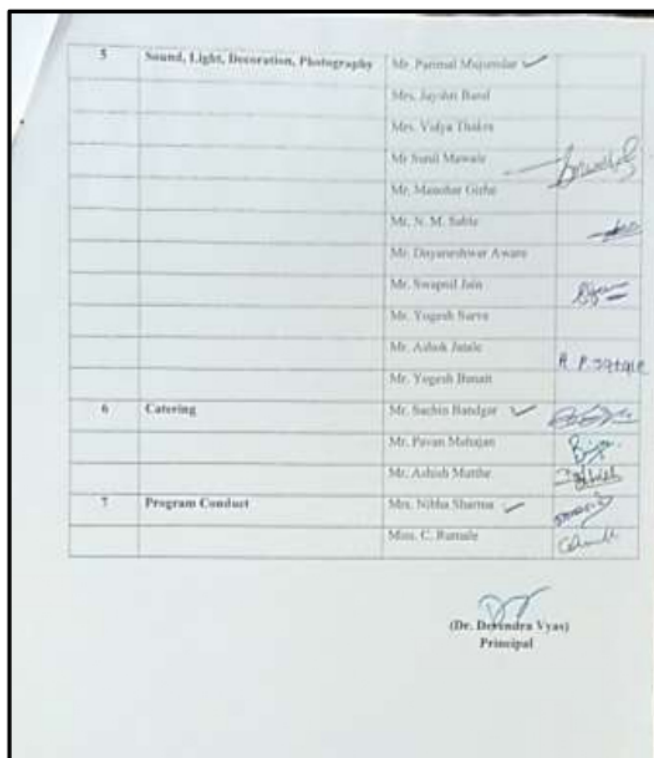 5 Sound, Light, Decoration, Photography Mr. Parimal Mujumdar
Mrs. Jayshri Band
Mrs. Vidya Thakre
Mr Sunil Mawale
Mr. Manohar Girhe
Mr. N. M. Sable
Mr. Dnyaneshwar Aware
Mr. Swapnil Jain
Mr. Yogesh Sarve
Mr. Ashok Jatale
Mr. Yogesh
6 Catering Mr. Sachin Bandgar
Mr. Pavan Mahajan
Mr. Ashish Murthe
7 Program Conduct Mrs. Nibha Sharma
Miss. C. Rumale
(Dr. Devendra Vyas)
Principal